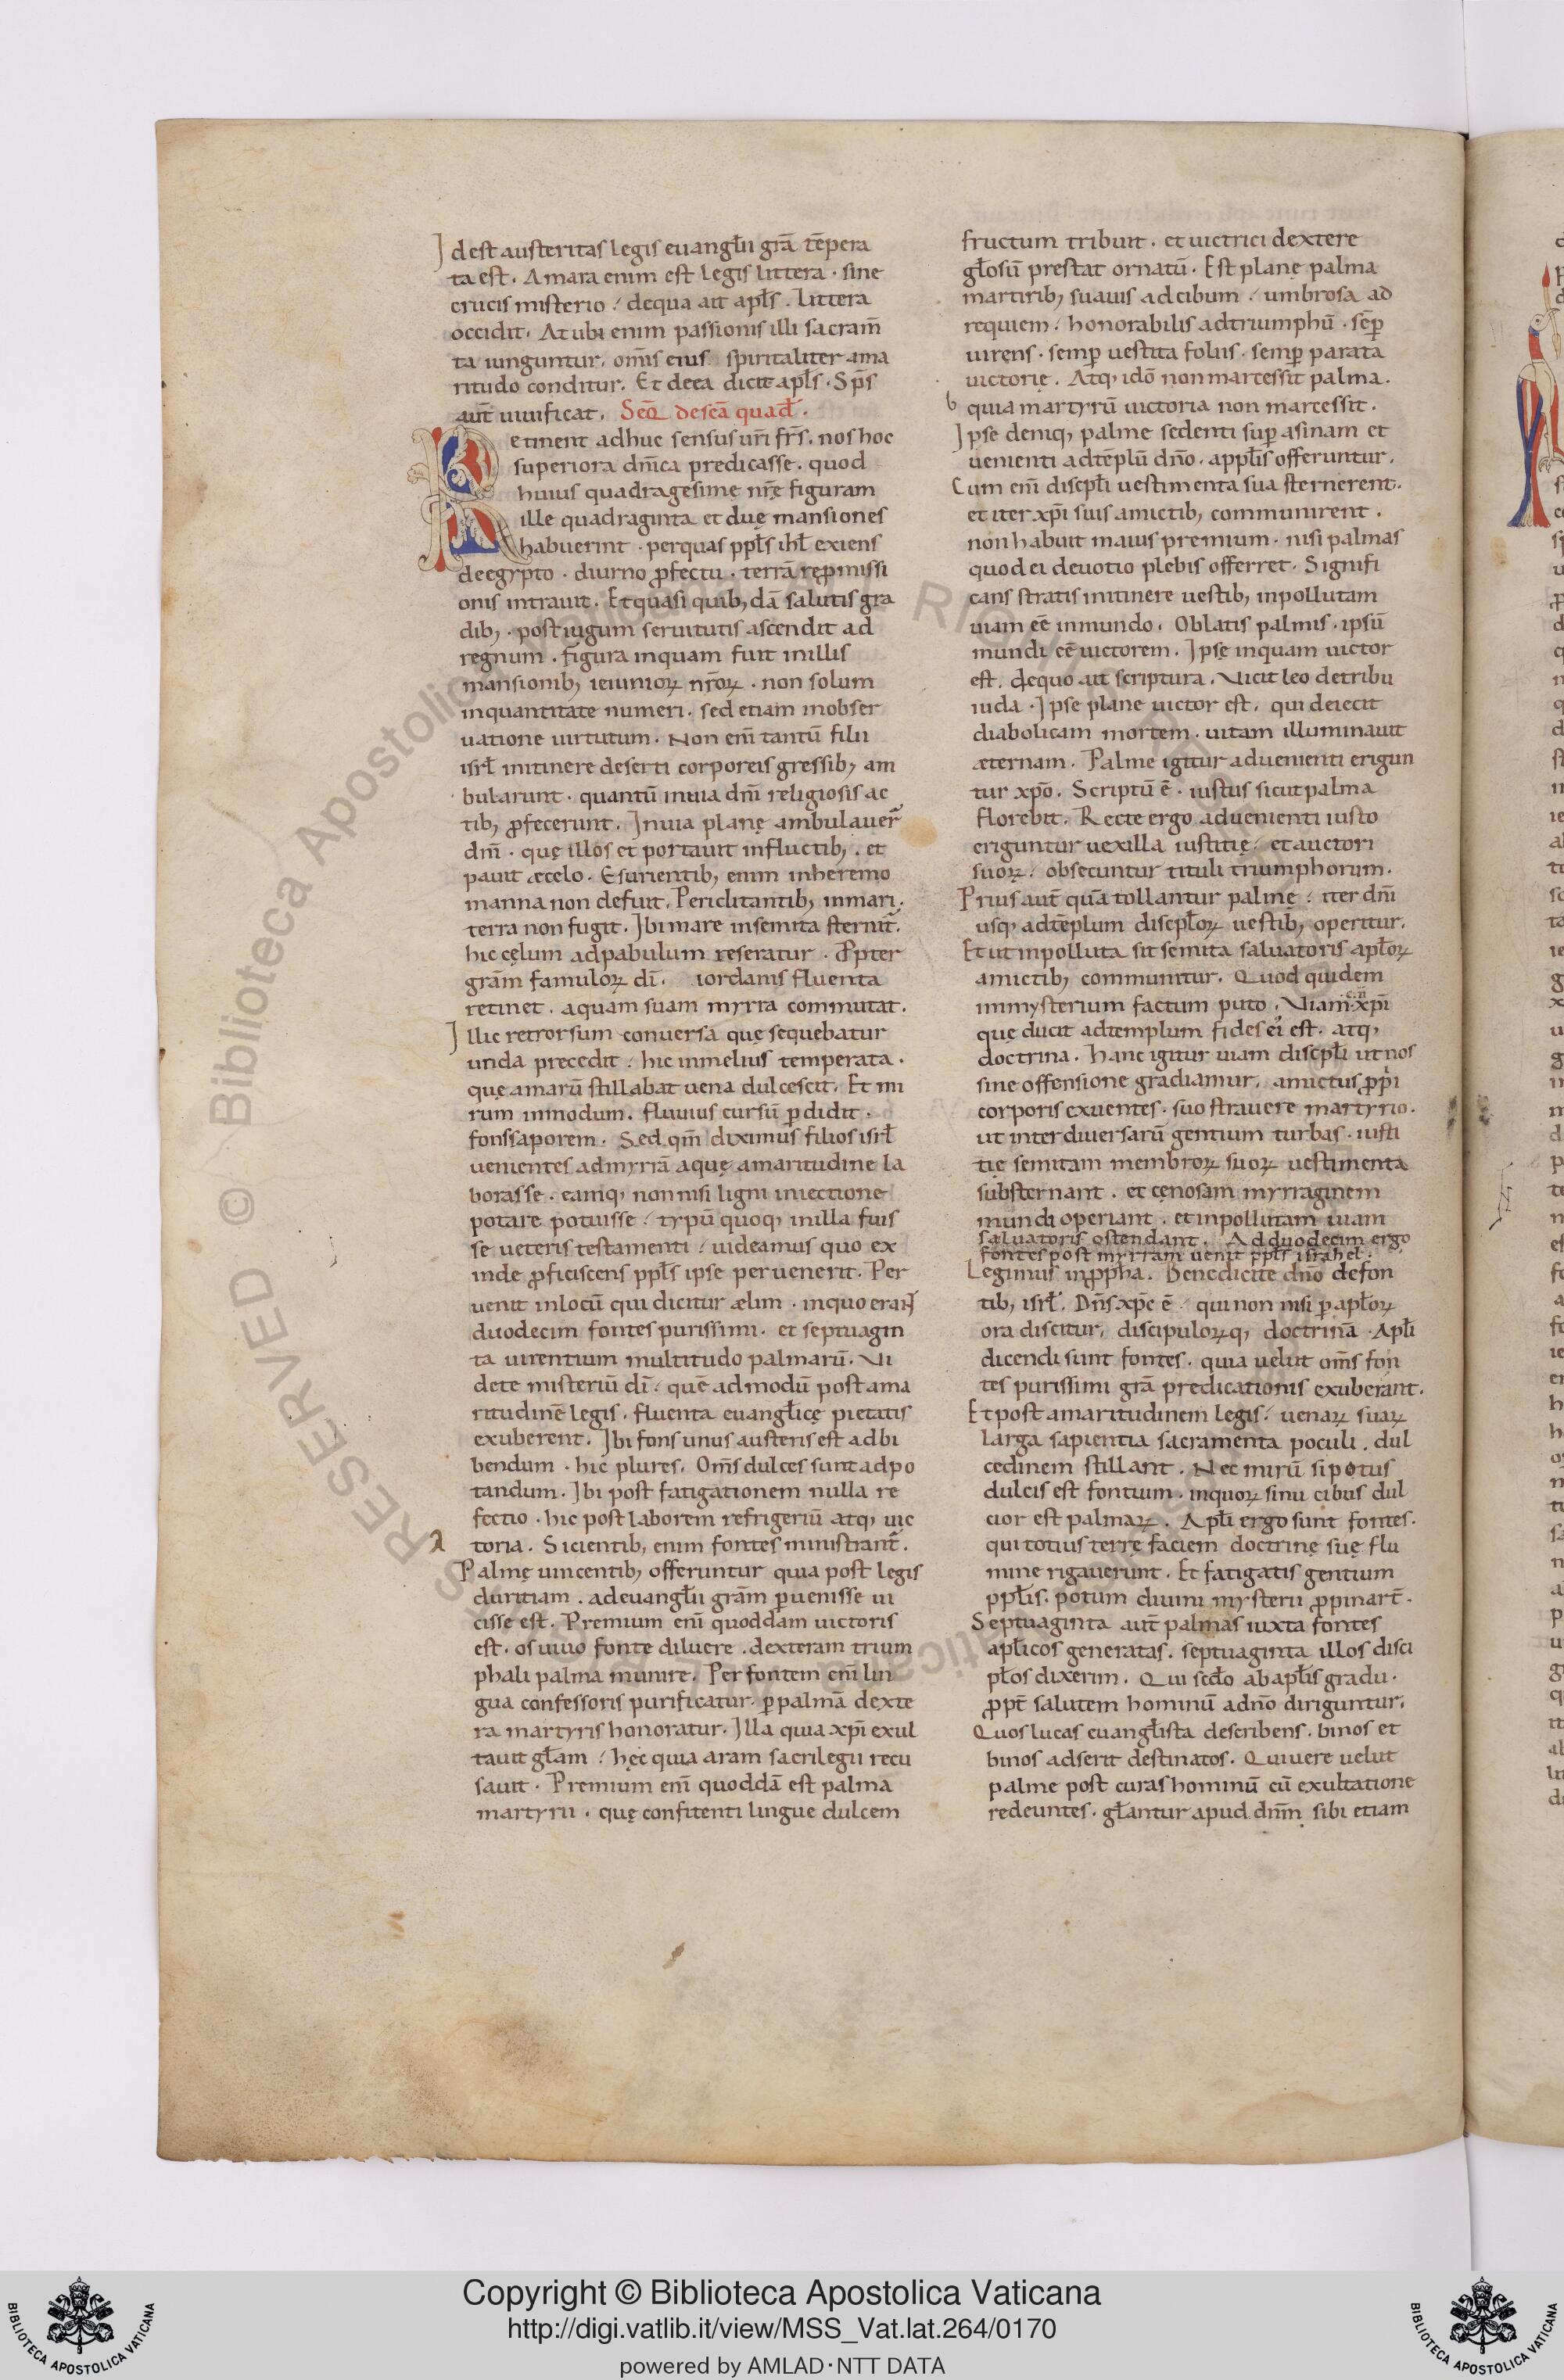 Id est austeritas legis euangłii grã tẽpera
ta est. Amara enim est legis littera. sine
crucis misterio: dequa ait apłs. Littera
occidit. At ubi enim passionis illi sacram̃
ta iunguntur. om̃is eius spiritaliter ama
ritudo conditur. Et de ea dicit apłs. Sp̃s
aut̃ uiuificat. Secd̃ de scã quad̃.
Retinent adhuc sensus ur̃i fr̃s. nos hoc
superiora dm̃ica predicasse. quod
huius quadragesimę nr̃ę figuram
ille quadraginta et duę mansiones
habuerint. per quas ppłs ihł exiens
de egypto. diurno ꝓfectu. terrã reꝓmissi
onis intrauit. Et quasi quibꝫdã salutis gra
dibꝫ. post iugum seruitutis ascendit ad
regnum. figura inquam fuit in illis
mansionibꝫ ieiunioꝝ nr̃oꝝ. non solum
in quantitate numeri. sed etiam in obser
uatione uirtutum. Non em̃ tantũ filii
isrł in itinere deserti corporeis gressibꝫ am
bularunt. quantũ in uia dñi religiosis ac
tibꝫ ꝓfecerunt. In uia planę ambulauer̃
dñi. quę illos et portauit in fluctibꝫ. et
pauit æcelo. Esurientibꝫ enim in heremo
manna non defuit. Periclitantibꝫ in mari.
terra non fugit. Ibi mare in semita sternit̃.
hic cęlum ad pabulum reseratur. Ꝓpter
grãm famuloꝝ dĩ. iordanis fluenta
retinet. aquam suam myrra commutat.
Illic retrorsum conuersa quę sequebatur
unda precedit: hic in melius temperata.
quę amarũ stillabat uena dulcescit. Et mi
rum in modum. fluuius cursũ ꝑdidit.
fons saporem. Sed qm̃ diximus filios isrł
uenientes ad myrrã aquę amaritudine la
borasse. eamqꝫ non nisi ligni iniectione
potare potuisse: typũ quoqꝫ in illa fuis
se ueteris testamenti: uideamus quo ex
inde ꝓficiscens ppłs ipse peruenerit. Per
uenit in locũ qui dicitur ælim. in quo erant
duodecim fontes purissimi. et septuagin
ta uirentium multitudo palmarũ. Vi
dete misteriũ dĩ: quẽ admodũ post ama
ritudinẽ legis. fluenta euangłicę pietatis
exuberent. Ibi fons unus austeris est ad bi
bendum. hic plures. Om̃s dulces sunt ad po
tandum. Ibi post fatigationem nulla re
fectio. hic post laborem refrigeriũ atqꝫ uic
toria. Sicientibꝫ enim fontes ministrant̃.
Palmę uincentibꝫ offeruntur quia post legis
duritiam. ad euangłii grãm ꝑuenisse ui
cisse est. Premium em̃ quoddam uictoris
est. os uiuo fonte diluere. dexteram trium
phali palma munire. Per fontem em̃ lin
gua confessoris purificatur. ꝑ palmã dexte
ra martyris honoratur. Illa quia xp̃i exul
tauit głam: hęc quia aram sacrilegii recu
sauit. Premium em̃ quoddã est palma
martyrii. quę confitenti lingue dulcem
fructum tribuit. et uictrici dextere
głosũ prestat ornatũ. Est planę palma
martiribꝫ suauis ad cibum: umbrosa ad
requiem: honorabilis ad triumphũ. semꝑ
uirens. semꝑ uestita foliis. semꝑ parata
uictorię. Atqꝫ idõ non marcessit palma.
quia martyrũ uictoria non marcessit.
Ipse deniqꝫ palme sedenti suꝑ asinam et
uenienti ad tẽplũ dño. appłis offeruntur.
Cum em̃ discpłi uestimenta sua sternerent.
et iter xp̃i suis amictibꝫ communirent.
non habuit maius premium. nisi palmas
quod ei deuotio plebis offerret. Signifi
cans stratis in itinere uestibꝫ inpollutam
uiam eẽ in mundo. Oblatis palmis. ipsũ
mundi eẽ uictorem. Ipse inquam uictor
est. dequo ait scriptura. Vicit leo de tribu
iuda. Ipse plane uictor est. qui deiecit
diabolicam mortem. uitam illuminauit
æternam. Palme igitur aduenienti erigun
tur xp̃o. Scriptũ ẽ. iustus sicut palma
florebit. Recte ergo aduenienti iusto
eriguntur uexilla iustitię: et auctori
suoꝝ: obsecuntur tituli triumphorum.
Prius aut̃ quã tollantur palmę: iter dñi
usqꝫ ad tẽplum discpłoꝝ uestibꝫ operitur.
Et ut inpolluta sit semita saluatoris apłoꝝ
amictibꝫ communitur. Quod quidem
in mysterium factum puto. Viam xp̃i
quę ducit ad templum fides ei est. atqꝫ
doctrina. Hanc igitur uiam discpłi ut nos
sine offensione gradiamur. amictus ꝓp̃i
corporis exuentes. suo strauere martyrio.
ut inter diuersarũ gentium turbas. iusti
tię semitam membroꝝ suoꝝ uestimenta
substernant. et cęnosam myrraginem
mundi operiant. et inpollutam uiam
saluatoris ostendant. Ad duodecim ergo
fontes post myrram uenit ppłs israhel.
Legimus in ꝓpħa. Benedicite dño de fon
tibꝫ isrł. Dñs xp̃c ẽ. qui non nisi ꝑ apłoꝝ
ora discitur. discipuloꝝqꝫ doctrinã. Apłi
dicendi sunt fontes. quia uelut om̃s fon
tes purissimi grã predicationis exuberant.
Et post amaritudinem legis: uenaꝝ suaꝝ
larga sapientia sacramenta poculi. dul
cedinem stillant. Nec mirũ si potus
dulcis est fontium. in quoꝝ sinu cibus dul
cior est palmaꝝ. Apłi ergo sunt fontes.
qui totius terrę faciem doctrinę suę flu
mine rigauerunt. Et fatigatis gentium
ppłis. potum diuini mysterii ꝓpinart̃.
Septuaginta aut̃ palmas iuxta fontes
apłicos generatas. septuaginta illos disci
płos dixerim. Qui secdo ab apłis gradu.
ꝓpt̃ salutem hominũ ad ño diriguntur.
Quos lucas euangłista describens. binos et
binos adserit destinatos. Qui uere uelut
palme post curas hominũ cũ exultatione
redeuntes. głantur apud dñm sibi etiam
Copyright © Biblioteca Apostolica Vaticana
http://digi.vatlib.it/view/MSS_Vat.lat.264/0170
powered by AMLAD·NTT DATA
BIBLIOTECA APOSTOLICA VATICANA
BIBLIOTECA APOSTOLICA VATICANA